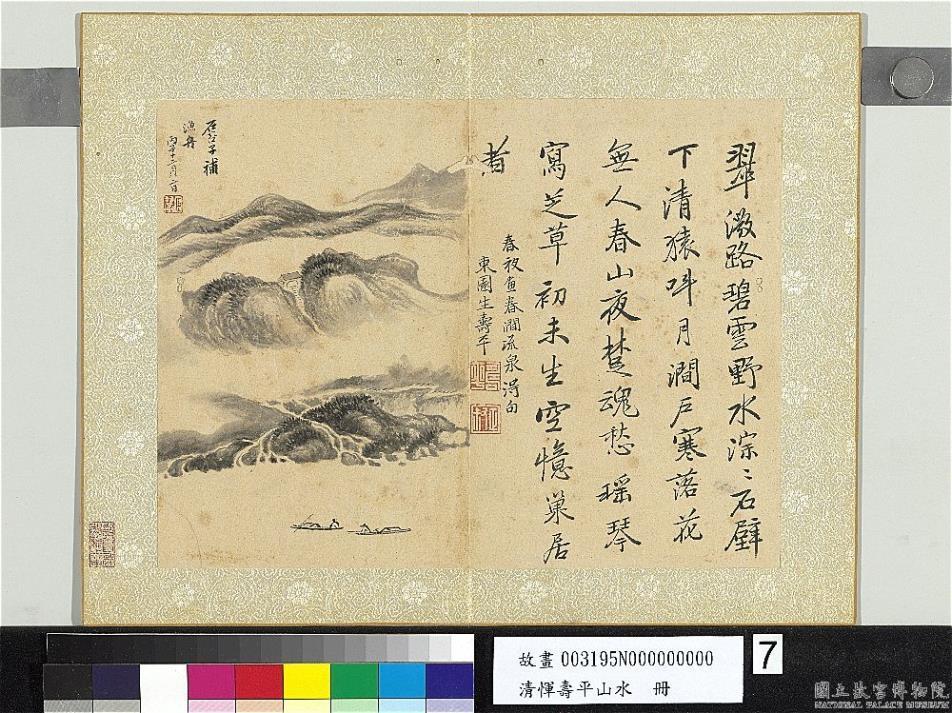 翠微路碧雲野水淙〻石壁
下清猿叫月澗戶寒落花
無人春山夜楚魂愁瑶琴
寫芝草初未生空憶巢居
者
春夜画春澗流泉得句
東園生壽平
石谷子補
漁舟
丙辰十二月二日
故畫 003195N000000000
清惲壽平山水 冊
7
國立故宮博物院
NATIONAL PALACE MUSEUM